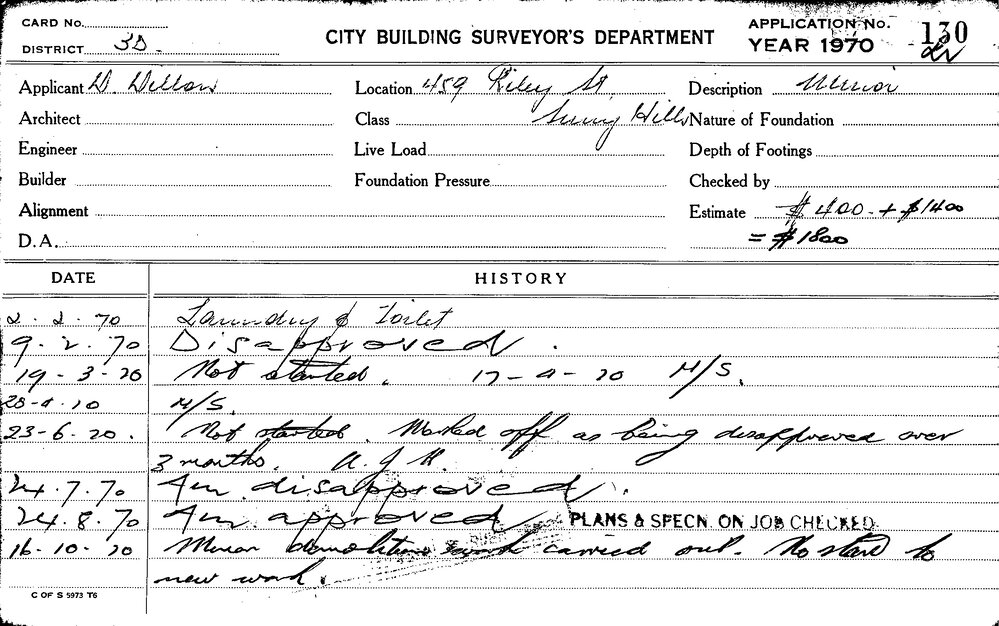 CARD No.
DISTRICT 3D.
CITY BUILDING SURVEYOR'S DEPARTMENT
APPLICATION No. 130
YEAR 1970
Applicant D. Dillon
Location 459 Riley St.
Description Minor
Architect
Class Surry Hills
Nature of Foundation
Engineer
Live Load
Depth of Footings
Builder
Foundation Pressure
Checked by
Alignment
Estimate $400 + $1400
D.A.
= $1800
DATE HISTORY
2. 2. 70 Laundry & Toilet
9. 2. 70 Disapproved.
19 - 3 - 70 Not started. 17-4-70 N/S.
28-4-70 N/S.
23-6.70. Not started. Marked off as being disapproved over
3 months.
24.7.70 Am. disapproved.
24.8.70 Am. approved PLANS & SPECN. ON JOB CHECKED
16-10-70 Minor demolition work carried out. No start to
new work.
C OF S 5973 T6